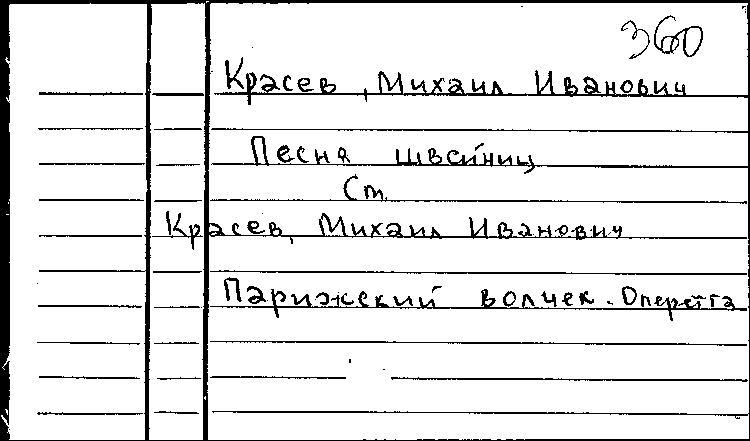 360
Красев, Михаил Иванович
Песня швейниц
См.
Красев, Михаил Иванович
Парижский волчек. Оперетта